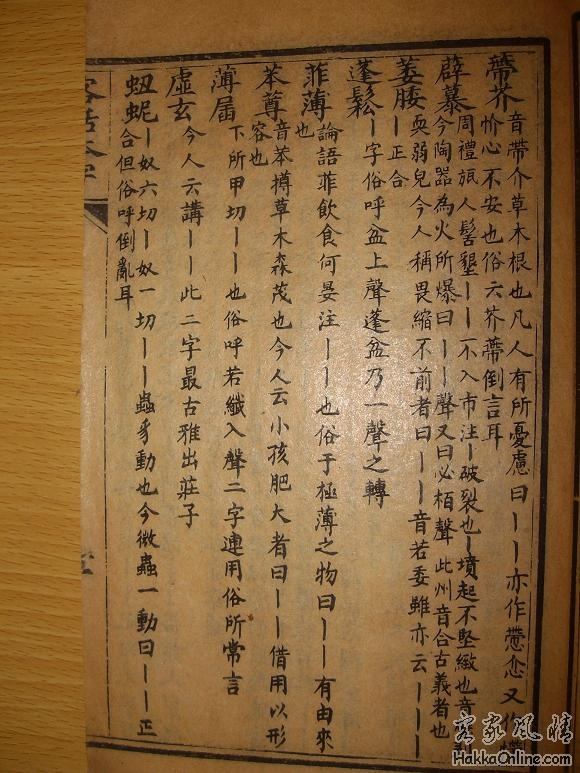 蔕芥
音帶介草木根也凡人有所憂慮曰丨丨亦作又作
忦心不安也俗六芥蔕倒言耳
周禮旅人髻墾丨丨不入市注丨破裂也丨墳起不堅緻也音
今陶器為火所爆曰丨丨聲又曰必栢聲 此州音合古義者也
萎腇
耎弱皃今人稱畏縮不前者曰丨丨音若委雖亦云丨丨
丨正合
蓬鬆
丨字俗呼盆上聲蓬盆乃一聲之轉
菲薄
論語菲飲食何晏注丨丨也俗于極薄之物曰丨丨有由來
也
苯尊
音苯樽草木森茂也今人云小孩肥大者曰丨丨借用以形
容也
薄屆
下所甲切丨丨也俗呼若纖入聲二字連用俗所常言
虛玄
今人云講丨丨此二字最古雅出莊子
䖡蚭
丨奴六切丨奴一切丨丨蟲豸動也今微蟲一動曰丨丨正
合但俗呼倒亂耳
客話本字
客家風情
HakkaOnline.com